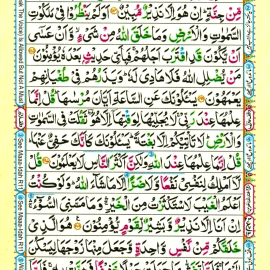 مِّنْ جِنَّةٍ ؕ اِنْ هُوَ اِلَّا نَذِیْرٌ مُّبِیْنٌ ۝ اَوَلَمْ یَنْظُرُوْا فِیْ مَلَكُوْتِ
السَّمٰوٰتِ وَالْاَرْضِ وَمَا خَلَقَ اللّٰهُ مِنْ شَیْءٍ ۙ وَّاَنْ عَسٰۤی
اَنْ یَّكُوْنَ قَدِ اقْتَرَبَ اَجَلُهُمْ ۚ فَبِاَیِّ حَدِیْثٍۭ بَعْدَهٗ یُؤْمِنُوْنَ ۝
مَنْ یُّضْلِلِ اللّٰهُ فَلَا هَادِیَ لَهٗ ؕ وَیَذَرُهُمْ فِیْ طُغْیَانِهِمْ
یَعْمَهُوْنَ ۝ یَسْـَٔلُوْنَكَ عَنِ السَّاعَةِ اَیَّانَ مُرْسٰىهَا ؕ قُلْ اِنَّمَا
عِلْمُهَا عِنْدَ رَبِّیْ ۚ لَا یُجَلِّیْهَا لِوَقْتِهَاۤ اِلَّا هُوَ ؔۘ ثَقُلَتْ فِی السَّمٰوٰتِ
وَالْاَرْضِ ؕ لَا تَاْتِیْكُمْ اِلَّا بَغْتَةً ؕ یَسْـَٔلُوْنَكَ كَاَنَّكَ حَفِیٌّ عَنْهَا ؕ
قُلْ اِنَّمَا عِلْمُهَا عِنْدَ اللّٰهِ وَلٰكِنَّ اَكْثَرَ النَّاسِ لَا یَعْلَمُوْنَ ۝ قُلْ
لَّاۤ اَمْلِكُ لِنَفْسِیْ نَفْعًا وَّلَا ضَرًّا اِلَّا مَا شَآءَ اللّٰهُ ؕ وَلَوْ كُنْتُ
اَعْلَمُ الْغَیْبَ لَاسْتَكْثَرْتُ مِنَ الْخَیْرِ ۛۖ وَمَا مَسَّنِیَ السُّوْٓءُ ۛۚ اِنْ
اَنَا اِلَّا نَذِیْرٌ وَّبَشِیْرٌ لِّقَوْمٍ یُّؤْمِنُوْنَ ۝ هُوَ الَّذِیْ
خَلَقَكُمْ مِّنْ نَّفْسٍ وَّاحِدَةٍ وَّجَعَلَ مِنْهَا زَوْجَهَا لِیَسْكُنَ